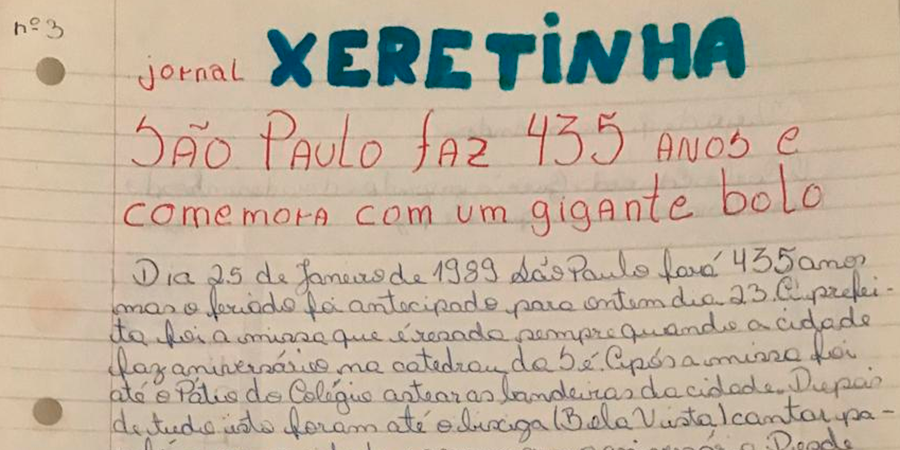 nº 3
jornal XERETINHA
SÃO PAULO fAZ 435 ANOS e
comemora com um gigante bolo
Dia 25 de Janeiro de 1989 São Paulo fará 435 anos
mas o feriado foi antecipado para ontem dia 23. A prefei-
ta foi a missa que é rezada sempre quando a cidade
faz aniversário na catedrau da Sé. Após a missa foi
até o Pátio do Colégio astear as bandeiras da cidade. Depois
de tudo isto foram até o bixiga (Bela Vista) cantar pa-